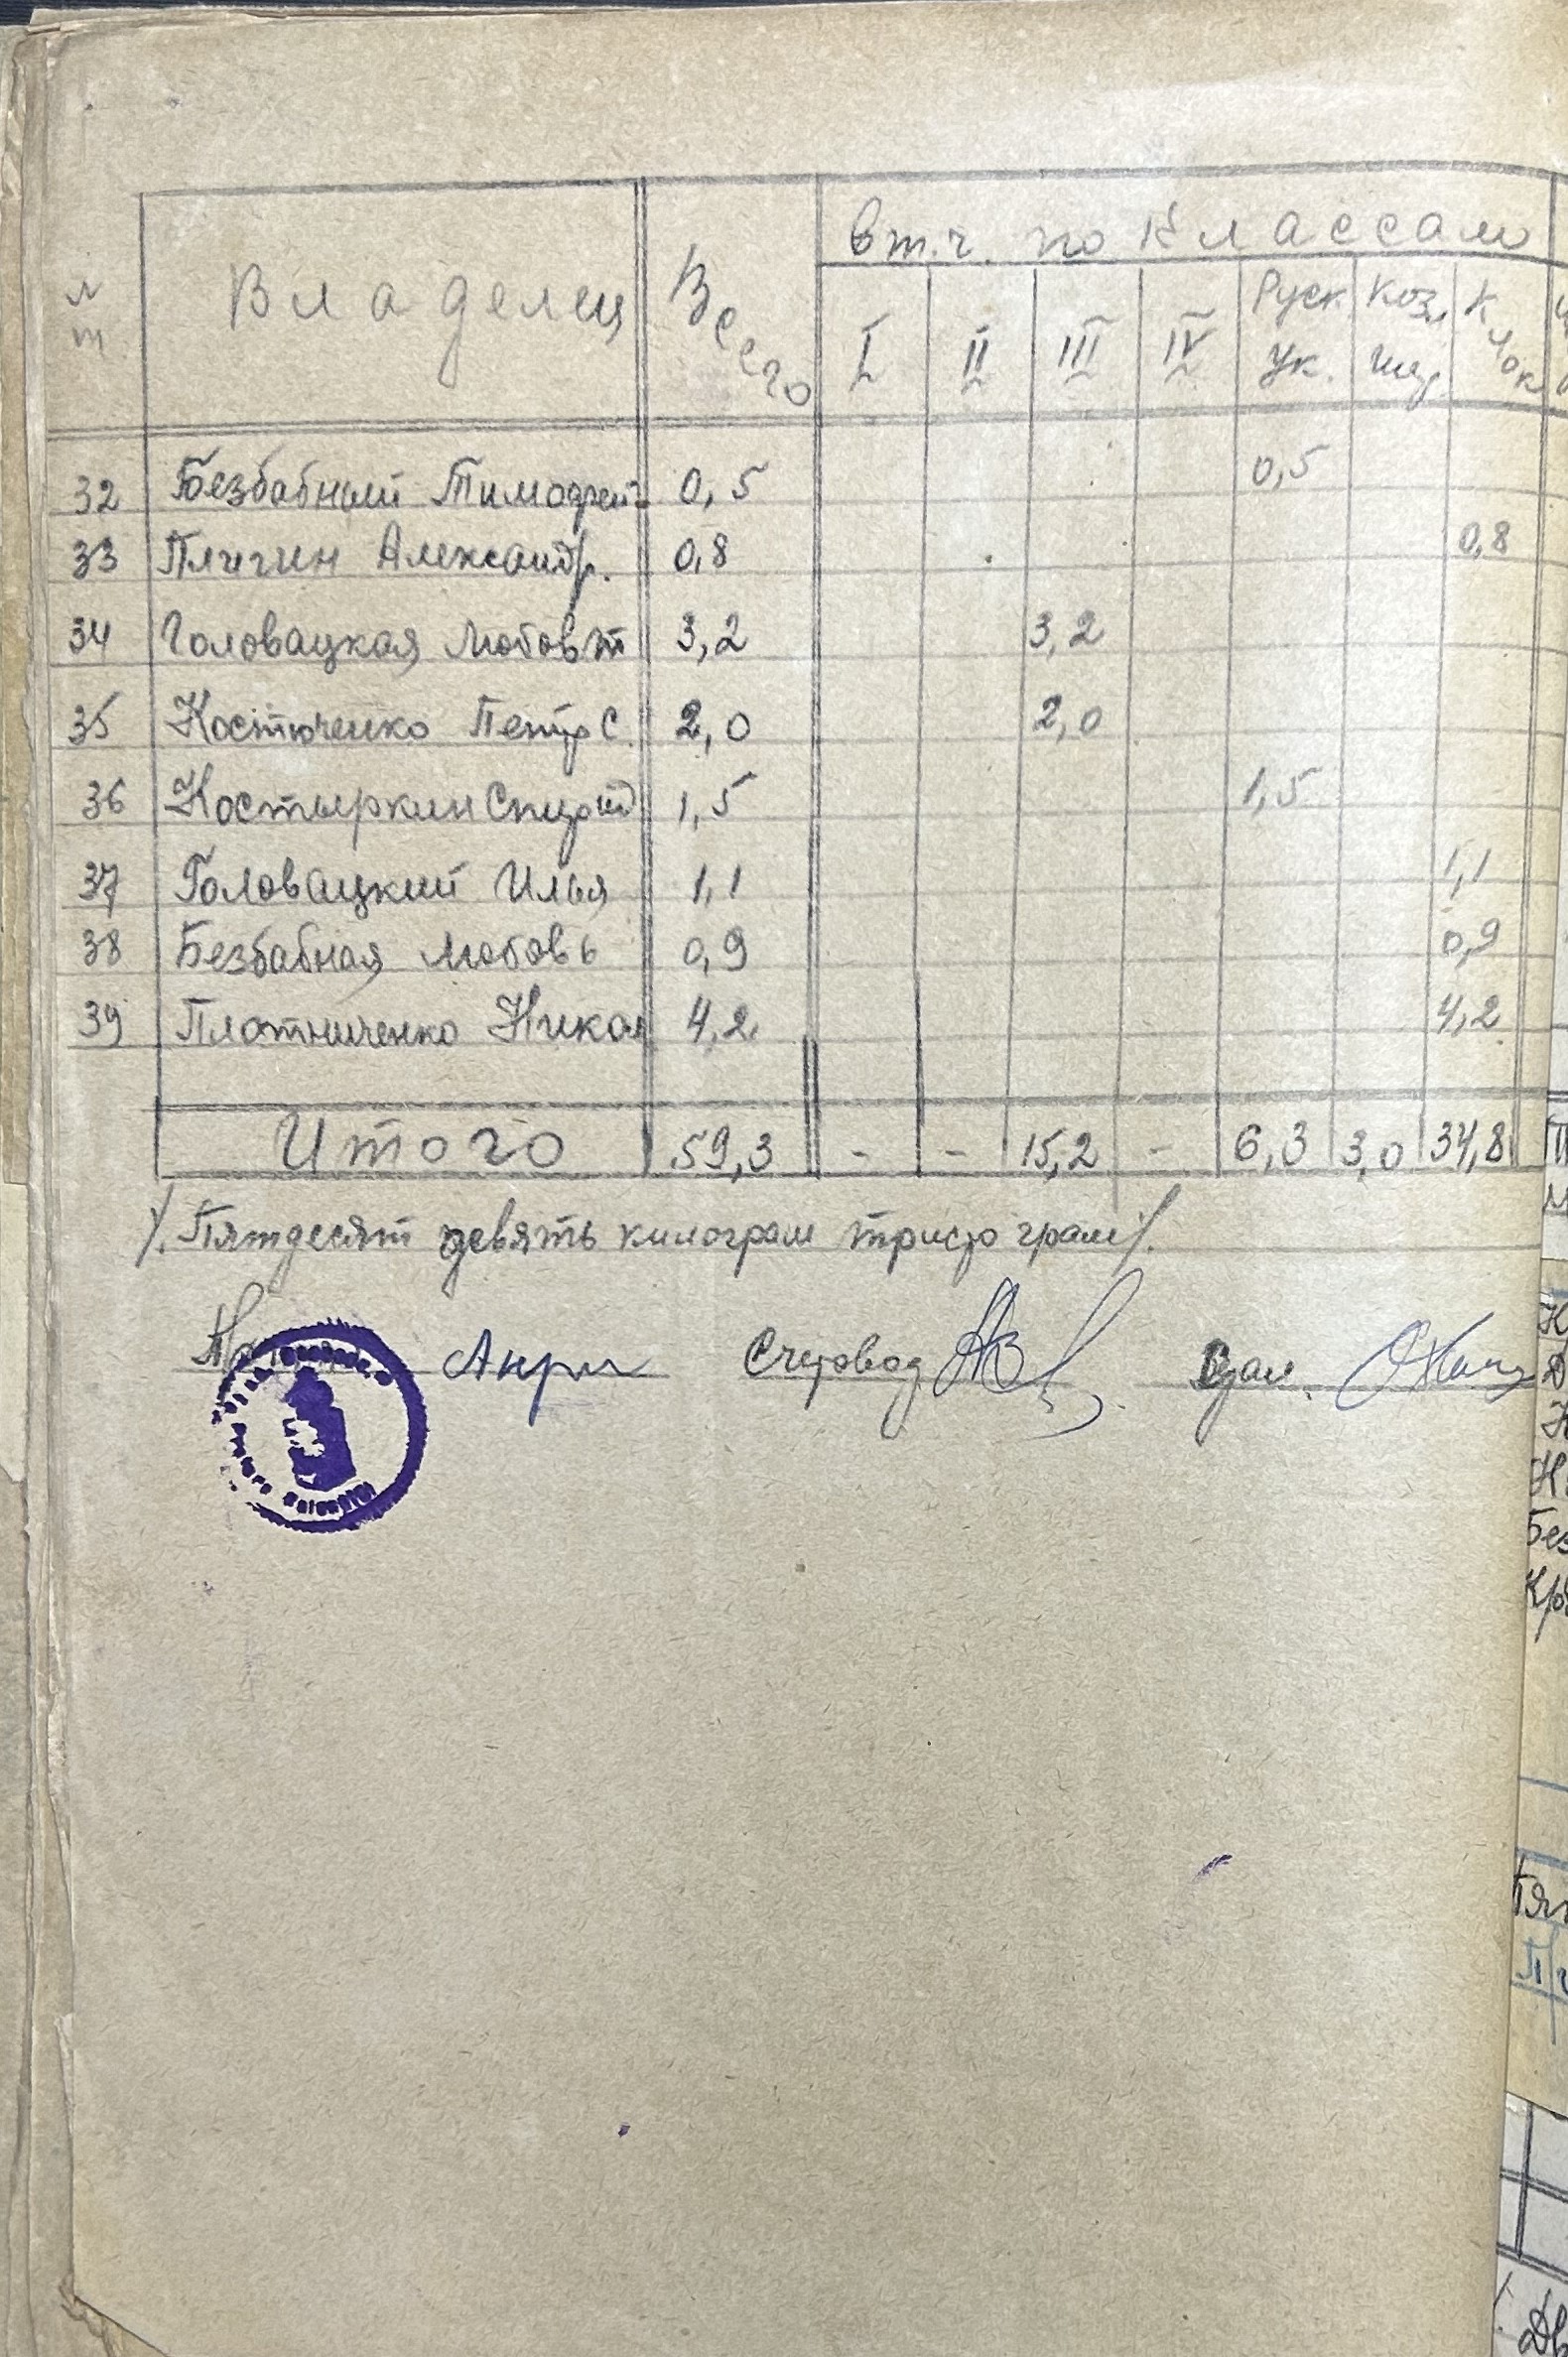 в т.ч. по классам
п Владелец Всего I II III IV Руск Коз. Клок
т Ук. шер.
32 Безбабный Тимофей 0,5 0,5
33 Плигин Александр. 0,8 0,8
34 Головацкая Любов т 3,2 3,2
35 Костюченко Петр С. 2,0 2,0
36 Костыркин Спирид 1,5 1,5
37 Головацкий Илья 1,1 1,1
38 Безбабная Любовь 0,9 0,9
39 Плотниченко Никол 4,2 4,2
Итого 59,3 - - 15,2 - 6,3 3,0 34,8
/. Пятдесят девять килограм тристо грам /.
Счетовод Сдал.